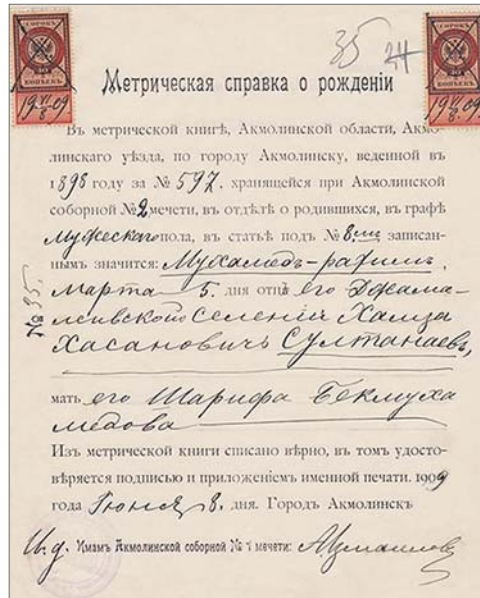 СОРОКЪ
КОПѢЕКЪ
19 VI/8 09
СОРОКЪ
КОПѢЕКЪ
19 VI/8 09
35 24
Метрическая справка о рожденіи
Въ метрической книгѣ, Акмолинской области, Акмо-
линскаго уѣзда, по городу Акмолинску, веденной въ
1898 году за № 597. хранящейся при Акмолинской
соборной № 2 мечети, въ отдѣлѣ о родившихся, въ графѣ
Мужескаго пола, въ статьѣ подъ № 8. записан-
нымъ значится: Мухамедъ-рахимъ.
Марта 5. дня отца его Джама-
Селенія Хамза
Хасановичъ Султанаевъ,
мать его Шарифа Бекмуха
медова
Изъ метрической книги списано вѣрно, въ томъ удосто-
вѣряется подписью и приложеніемъ именной печати. 1909
года Іюня 8. дня. Городъ Акмолинскъ
И. д. Имамъ Акмолинской соборной № 1 мечети: